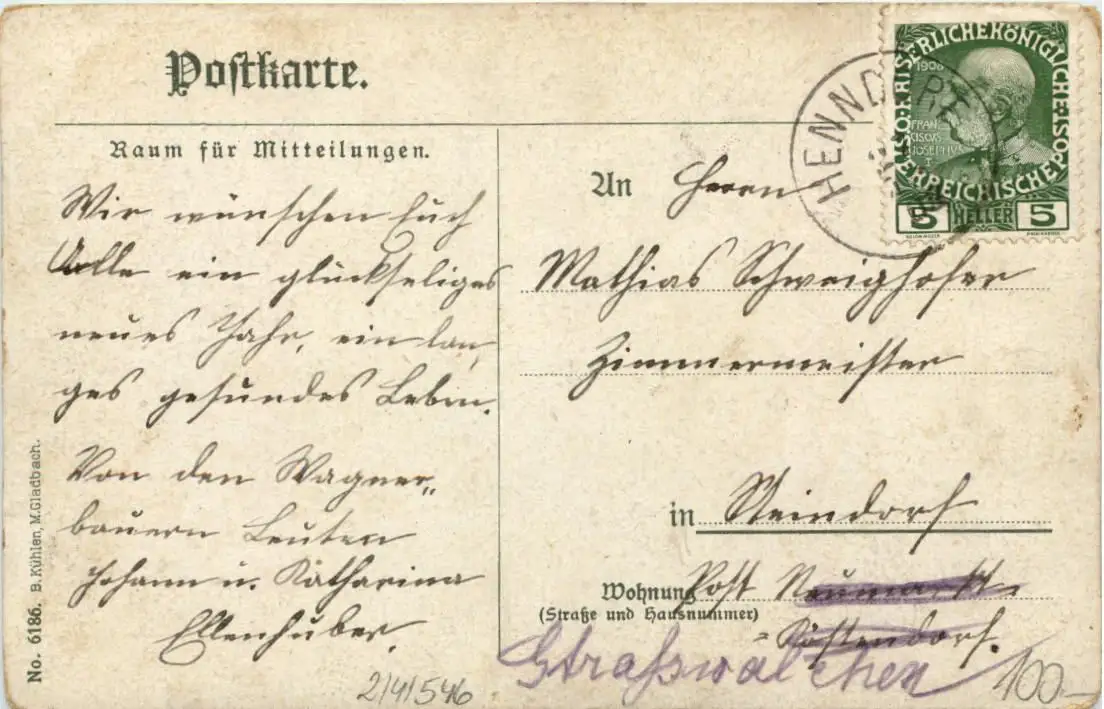 Postkarte.
Raum für Mitteilungen.
Wir wünschen Euch
Alle ein glückseliges
neues Jahr, ein lan„
ges gesundes Leben.
Von den Wagner„
bauern Leuten
Johann u. Katharina
Ellenhuber.
No. 6186. B. Kühlen, M. Gladbach.
2/41/546
HENNDORF
KAISERLICHE KÖNIGLICHE
ÖSTERREICHISCHE POST
1908
FRAN
CISCVS
IOSEPHVS
I
5 HELLER 5
An Herrn
Mathias Schweighofer
Zimmermeister
in Steindorf
Wohnung Post Neumarkt-
(Straße und Hausnummer)
-Köstendorf.
Straßwalchen
100.-